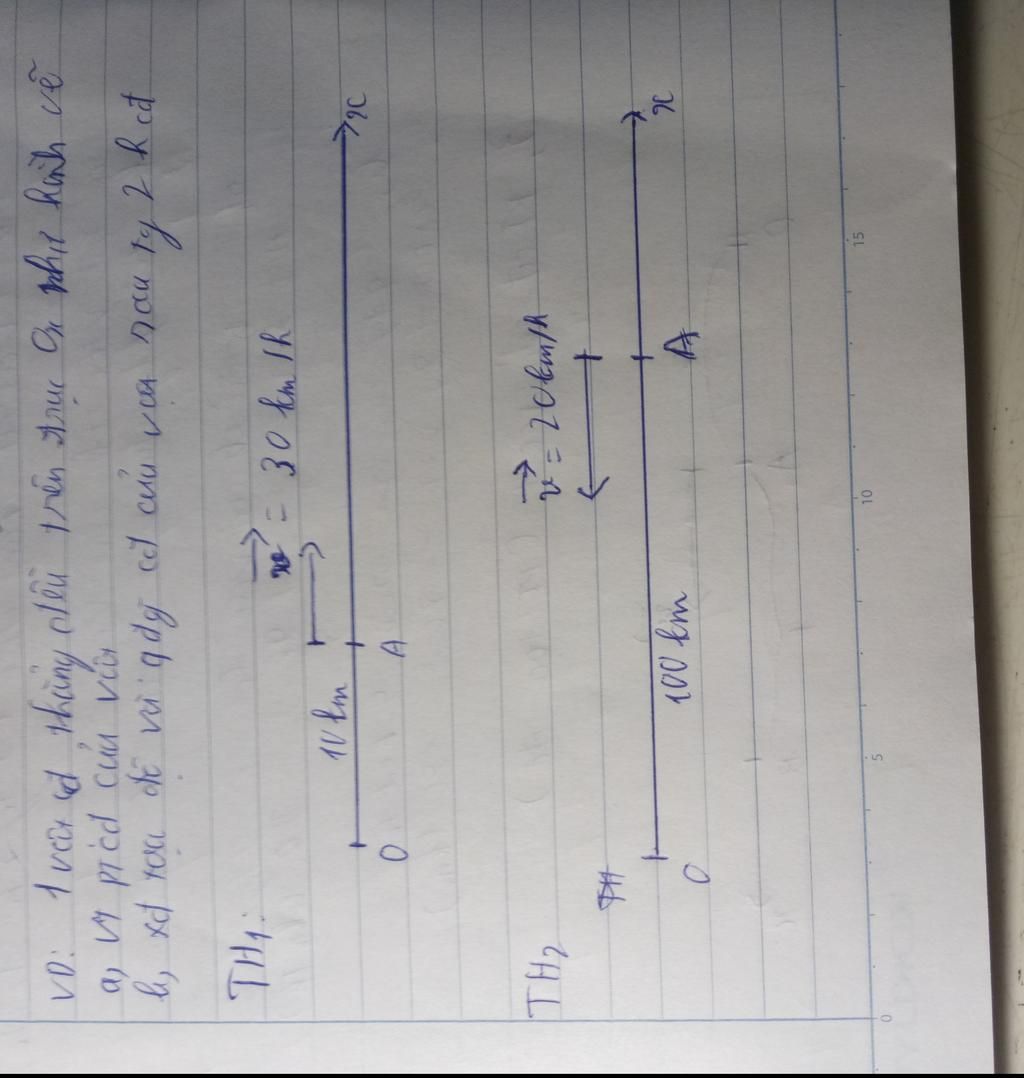 VD: 1 vật cđ thẳng đều trên trục Ox như hình vẽ
a, Vt ptcđ của vật
b, xđ toạ độ và qđg cđ của vật sau 2 h cđ
TH1:
v = 30 km/h
10 km
O A x
TH
TH2
v = 20km/h
100 km
O A x
0 5 10 15